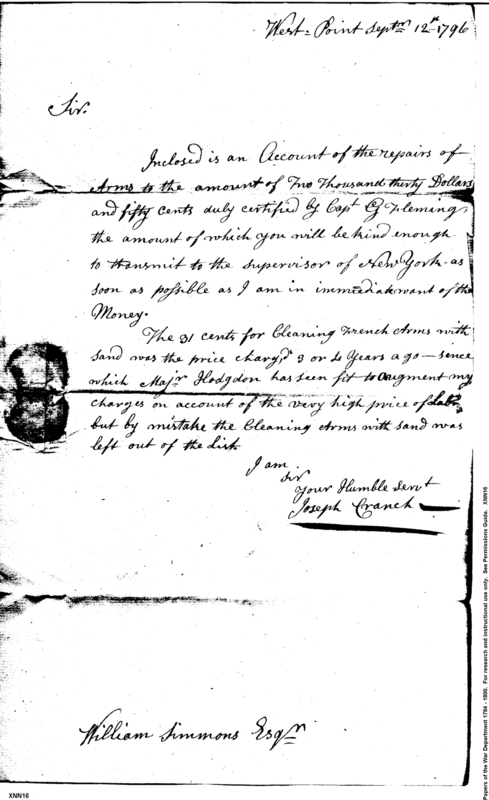 West-Point Septmr 12th 1796
Sir.
Inclosed is an Account of the repairs of
Arms to the amount of Two Thousand thirty Dollars
and fifty cents duly certified by Capt G Fleming
the amount of which you will be kind enough
to transmit to the supervisor of New York as
soon as possible as I am in immediate want of the
Money.
The 31 cents for Cleaning French Arms with
sand was the price charg,d 3 or 4 Years ago — sence
which Majr Hodgdon has seen fit to augment my
charges on account of the very high price of Labr
but by mistake the Cleaning Arms with sand was
left out of the List
I am
Sir
Your Humble Servt
Joseph Cranch
William Simmons Esqr
Papers of the War Department 1784 - 1800. For research and instructional use only. See Permissions Guide. XNN16
XNN16